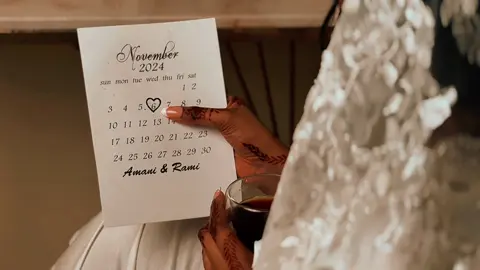 November
2024
sun mon tue wed thu fri sat
1 2
3 4 5 6 7 8 9
10 11 12 13 14
17 18 19 20 21 22 23
24 25 26 27 28 29 30
Amani & Rami